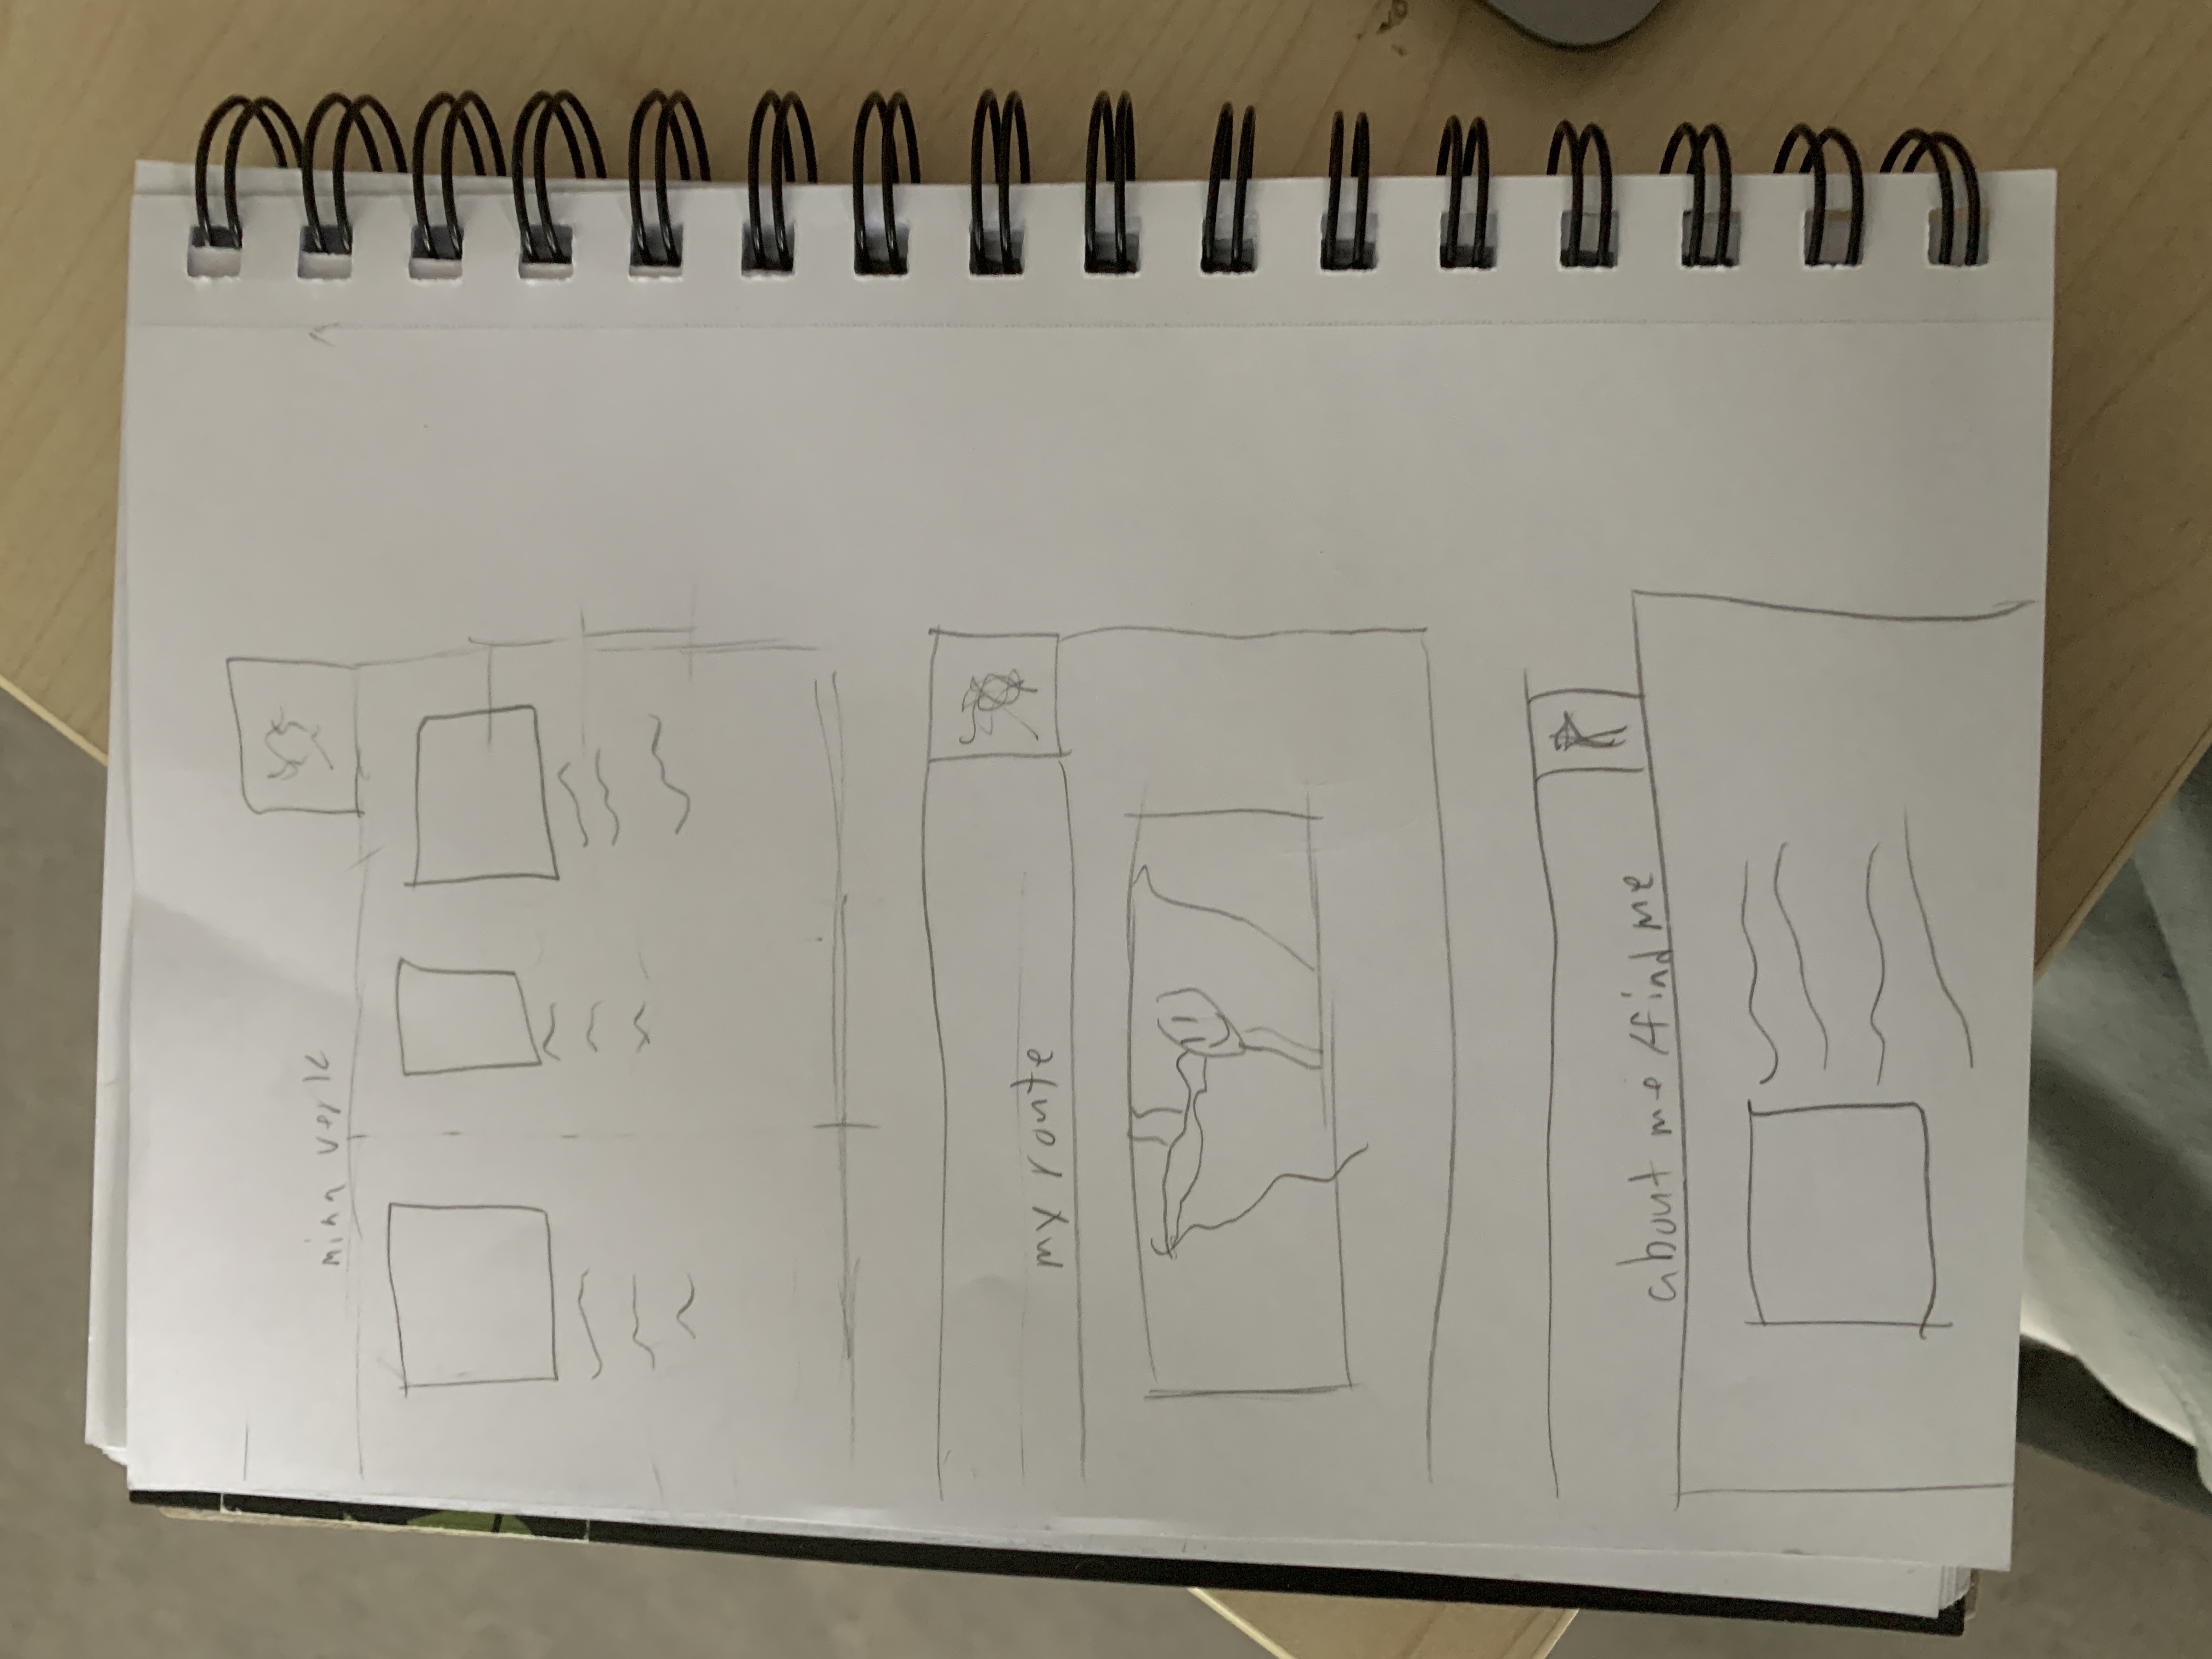 mina verk
my route
about me / find me